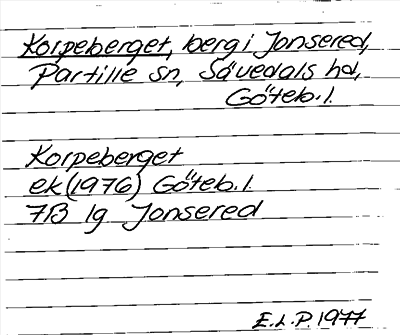 Korpeberget, berg i Jonsered,
Partille sn, Sävedals hd,
Göteb. l.
Korpeberget
ek (1976) Göteb. l.
7B 1g Jonsered
E.L.P. 1977